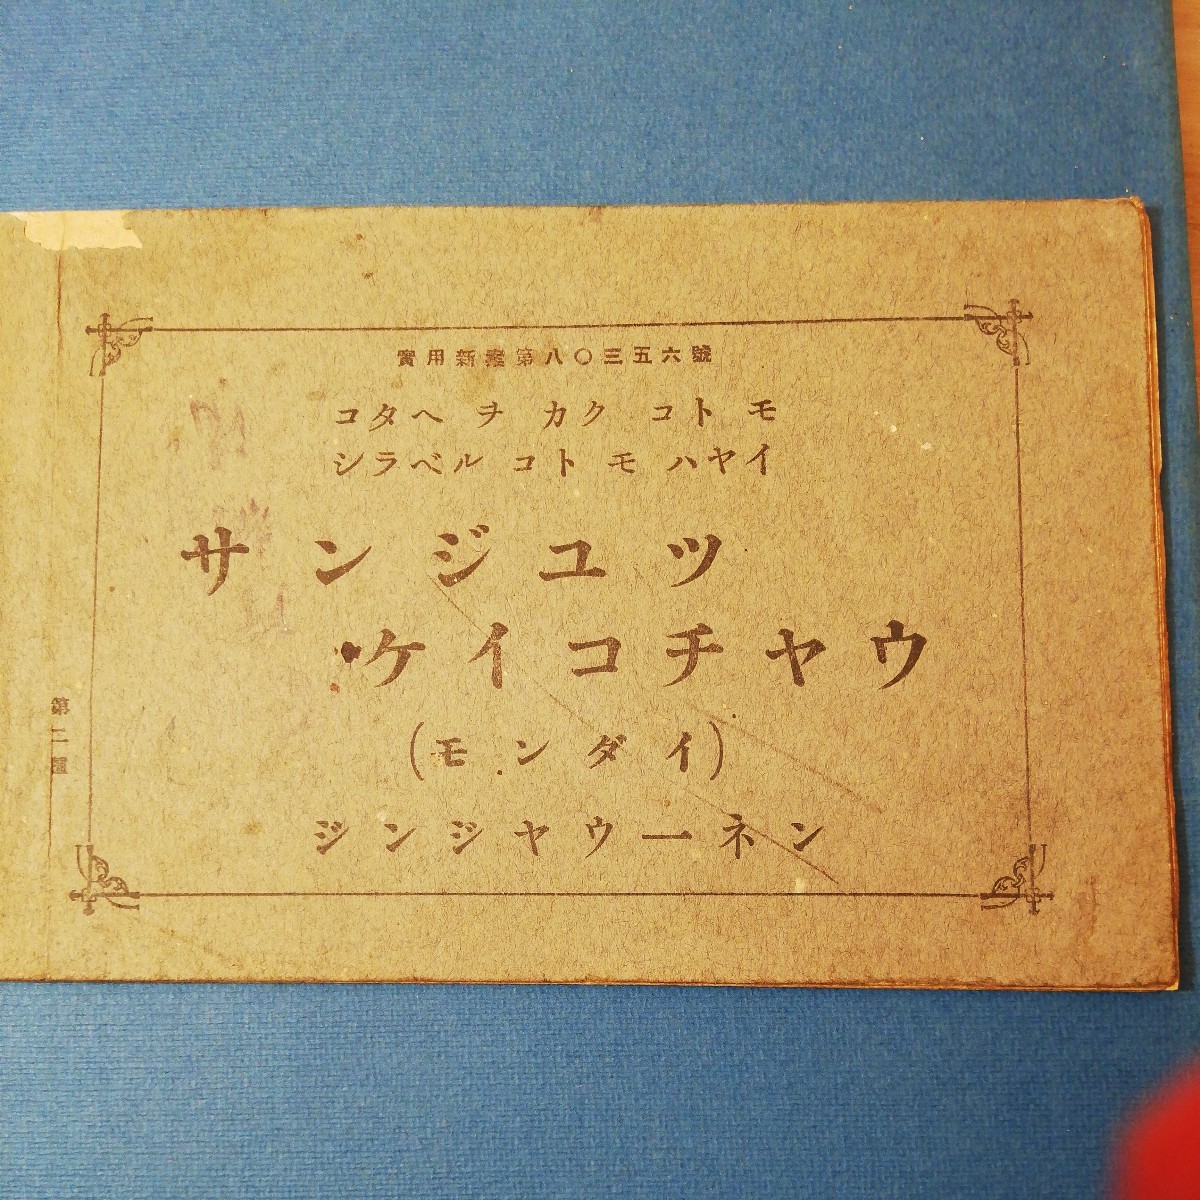 實用新案第八〇三五六號
コタヘ ヲ カク コト モ
シラベル コト モ ハヤイ
サンジユツ
ケイコチヤウ
(モンダイ)
ジンジヤウ一ネン
第二種